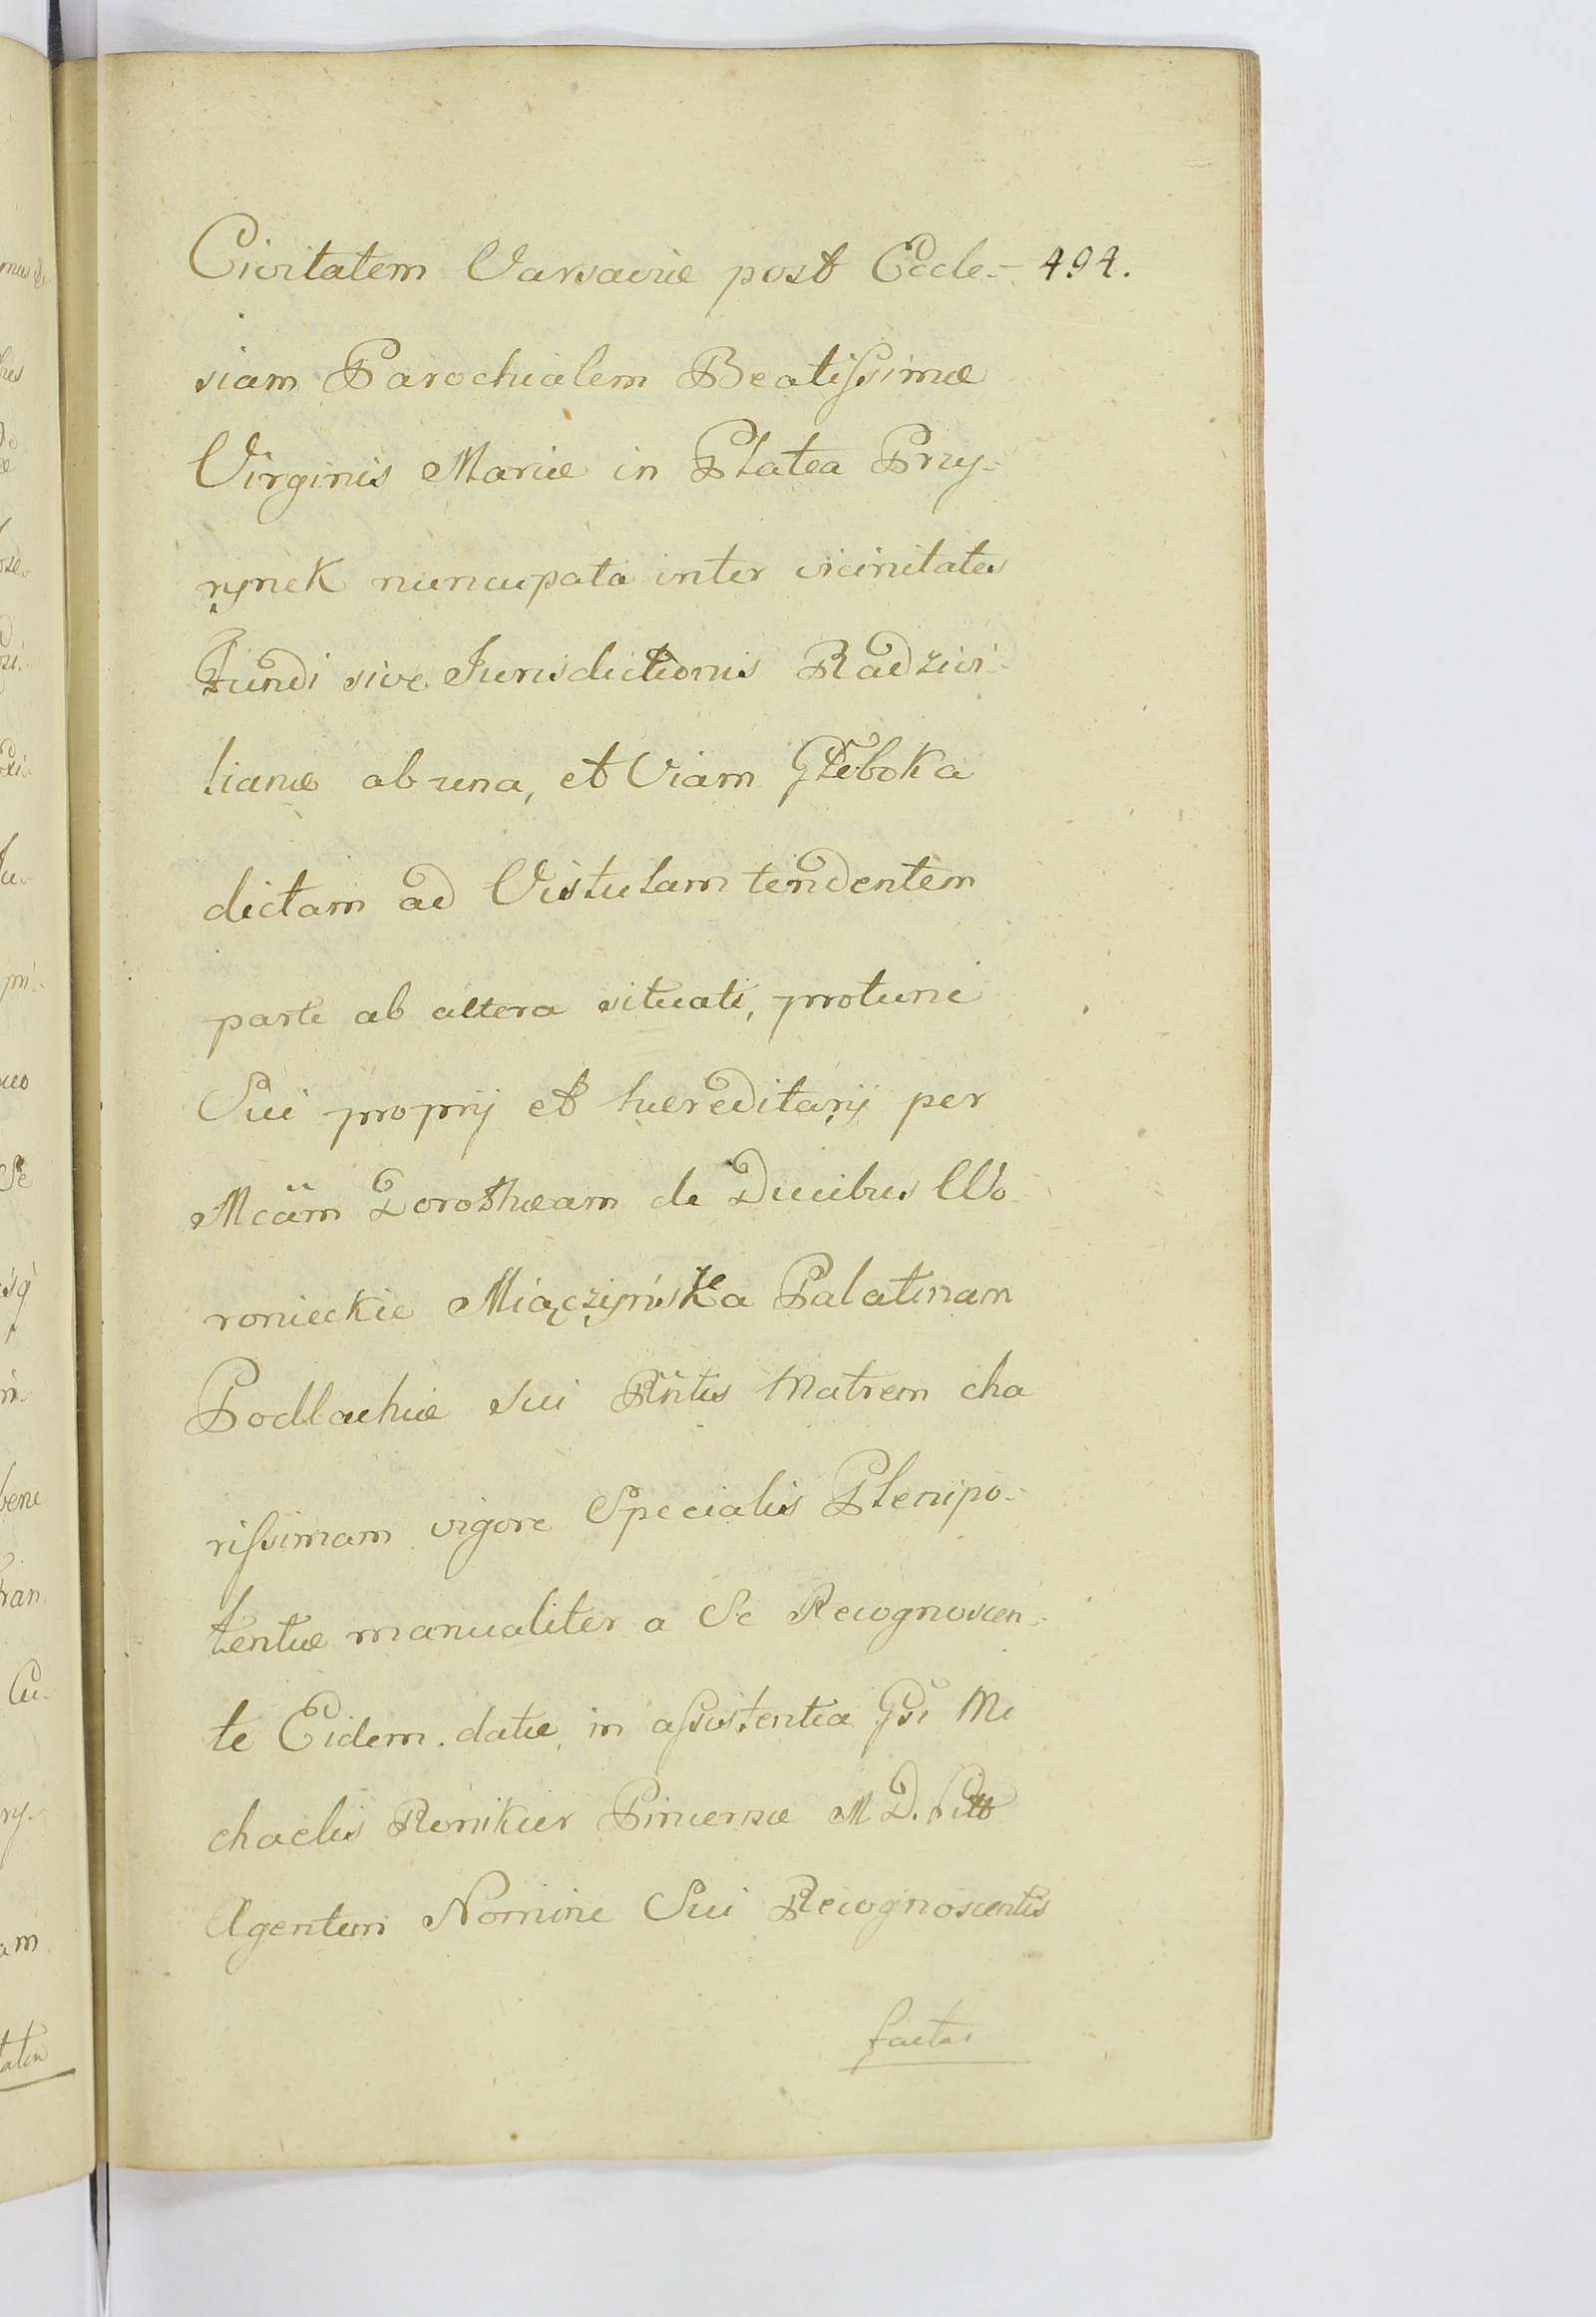 Civitatem Varsaviæ post Eccle- 494.
siam Parochialem Beatissimæ
Virginis Mariæ in Platea Przy-
rynek nuncupata inter vicinitates
Fundi sive Jurisdictionis Radzivi-
lianæ ab una, et Viam Głęboka
dictam ad Vistulam tendentem
parte ab altera situati, protunc
Sui proprij et hæreditarij per
Mcam Dorothæam de Ducibus Wo-
ronieckie Miączyńska Palatinam
Podlachiæ sui Rñtis Matrem cha
rissimam vigore Specialis Plenipo-
tentiæ manualiter a Se Recognoscen-
te Eidem datæ, in assistentia Gsi Mi
chaelis Ronikier Pincernæ M D. Litt
Agentem Nomine Sui Recognoscentis
factas